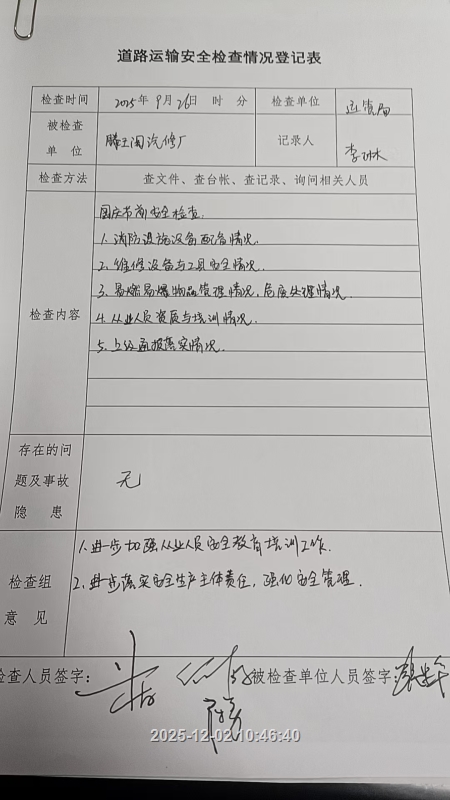 道路运输安全检查情况登记表
检查时间 2025年9月26日 时 分 检查单位 运管局
被检查单位 滕王阁汽修厂 记录人 李
检查方法 查文件、查台帐、查记录、询问相关人员
检查内容
国庆节前安全检查:
1. 消防设施设备配备情况.
2. 维修设备与工具安全情况.
3. 易燃易爆物品管理情况, 危废处理情况.
4. 从业人员资质与培训情况.
5. 上级通报落实情况.
存在的问题及事故隐患
无
检查组意见
1. 进一步加强从业人员安全教育培训工作.
2. 进一步落实安全生产主体责任, 强化安全管理.
检查人员签字: 被检查单位人员签字:
2025-12-02 10:46:40